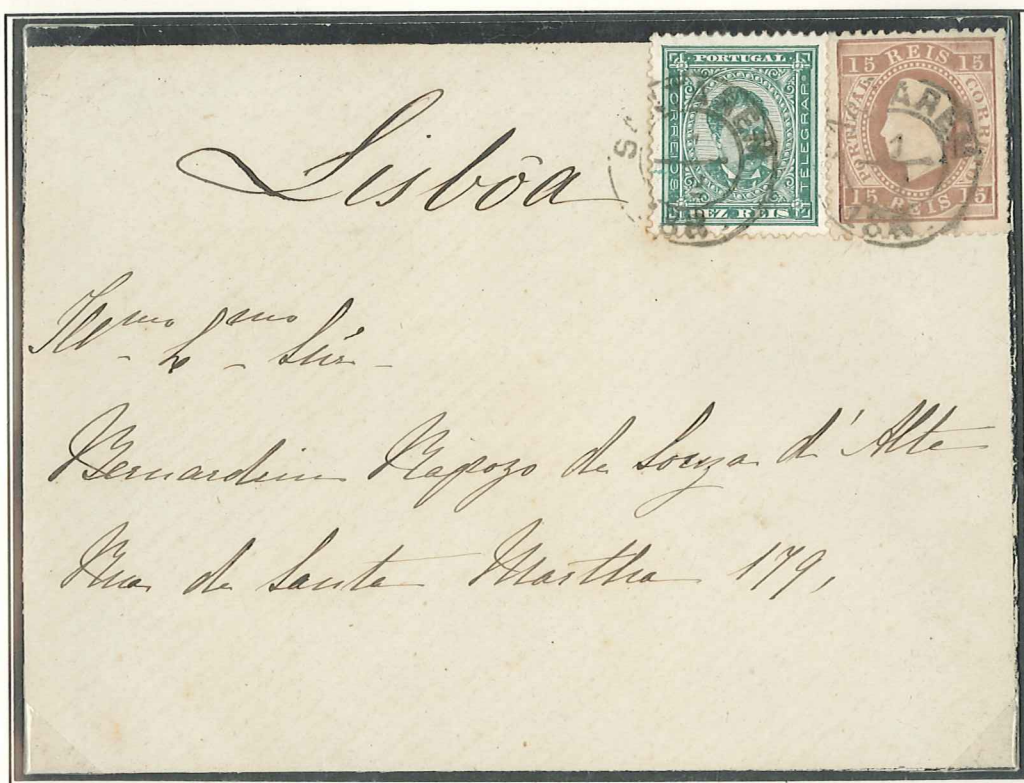 PORTUGAL
CORREIOS
TELEGRAPHOS
DEZ REIS
15 REIS 15
PORTUGAL
CORREIO
15 REIS 15
SANTAREM
1
88
SANTAREM
1
88
Lisbôa
Illmo Exmo Snr
Bernardim Rapozo de Souza d'Alte
Rua de Santa Martha 179,